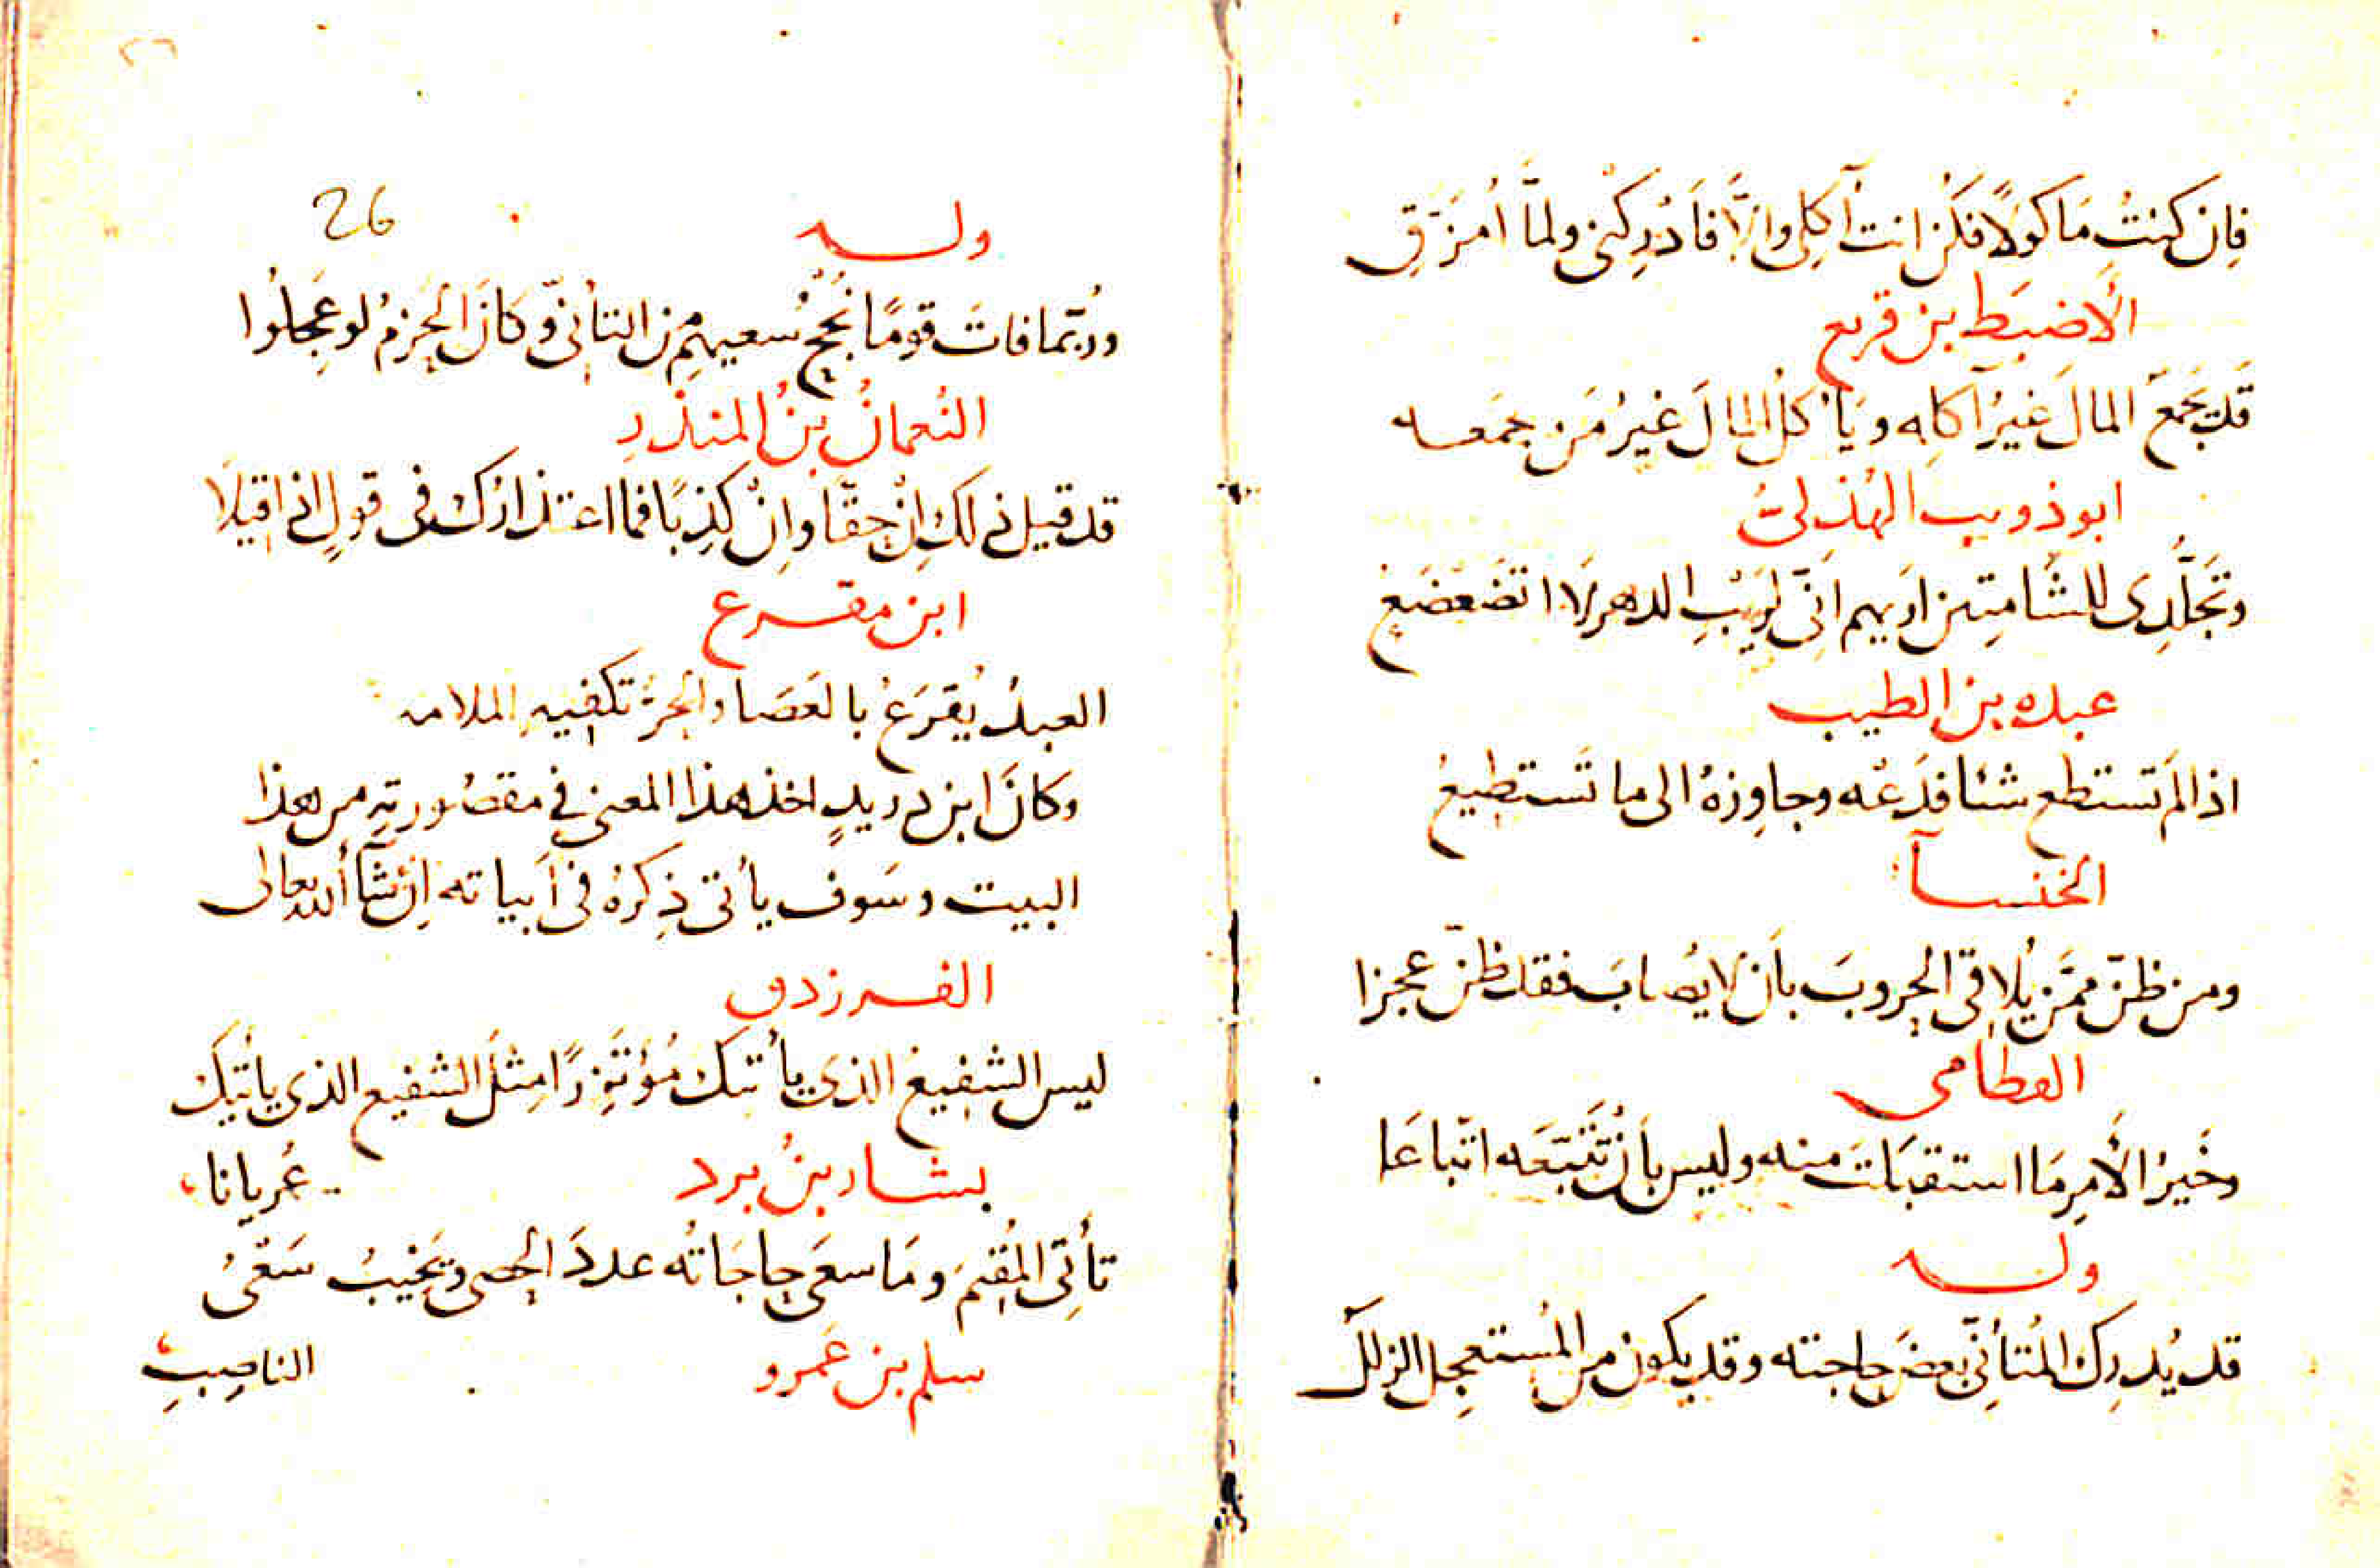 فاِن كنتُ مَاكولًا فكُن انتَ آكِلى واِلَّا فَاَدْرِكْنى ولمَّا أُمَزَّقِ
الأضبَط بن قريع
قَد يَجمَعُ المالَ غيرُ آكله ويَأكلُ المالَ غيرُ مَن جمَعه
ابو ذويب الهُذلىُّ
وتَجَلُّدى للشَّامتِين اُريهم اَنِّى لِرَيْبِ الدهر لا اتضَعْضَع
عبده بن الطيب
اذا لم تَستطع شئا فدَعْه وجاوِزهُ الى ما تَستطيعُ
الخنسآ
ومن ظنّ ممَّن يُلاقى الحروبَ بأن لا يُصابَ فقد ظنّ عجزا
القطامى
وخَيرُ الأمرِ مَا استقبَلتَ منه وليس بأن تَتَبَّعَه اتّباعَا
وله
قد يُدرِك المُتأنِّى بعضَ حاجته وقد يكون من المُستعجِل الزللُ
26
وله
ورُبّما فاتَ قومًا نُجْحُ سعيهم من التأنّى وكانَ الحزمُ لو عَجِلُوا
النُعمانُ بنُ المنذرِ
قد قيل ذلك اِنْ حقًّا واِنْ كذِبًا فما اعتذارُك فى قولٍ اذا قيلَا
ابن مفرغ
العبدُ يُقرَعُ بالعَصَا والحُرّ تكفيه الملامه
وكانَ ابن دريدٍ اخذ هذا المعنى في مقصُورتهِ من هذا
البيت وسَوف يأتى ذِكرهُ فى اَبياته اِن شآ الله تعالى
الفرزدق
ليس الشفيعُ الذى يأتيك مُؤتَزِرًا مِثلَ الشفيع الذى يأتيك
عُريانا
بشار بنُ برد
تأتِى المُقيمَ ومَا سعَى حاجَاتُه عددَ الحصى ويَخيبُ سَعْىُ
الناصِبِ
سلم بن عَمرو